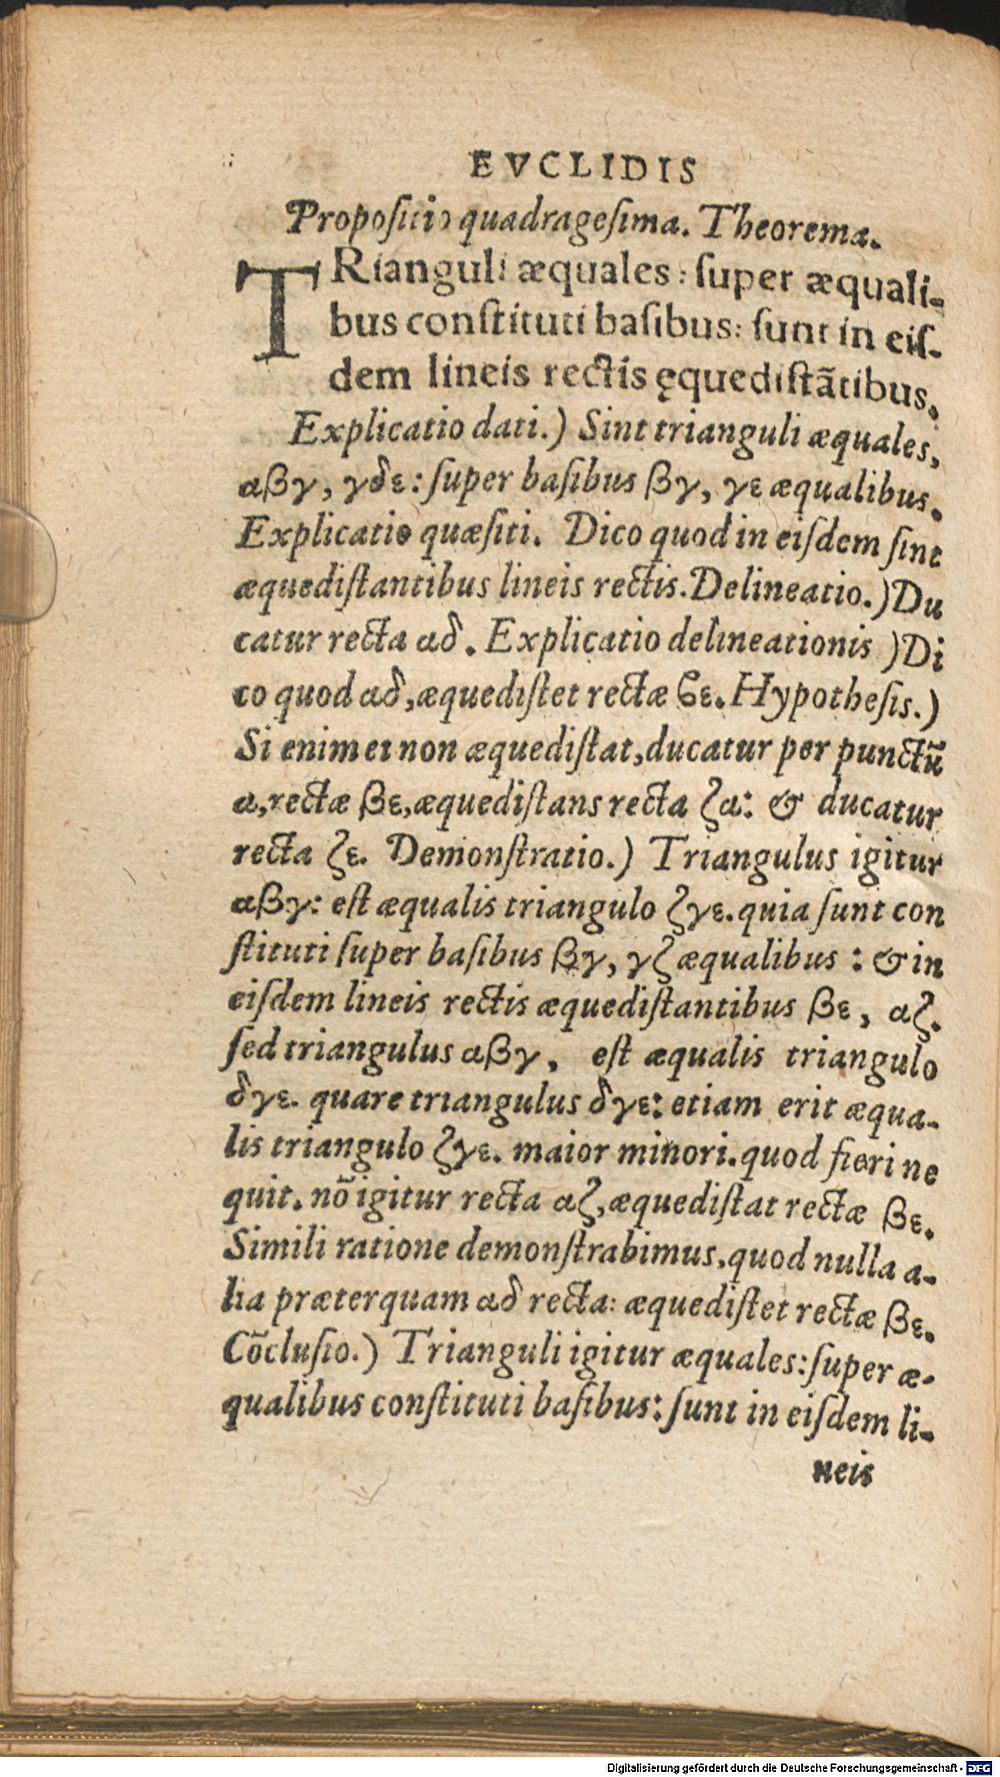 EVCLIDIS
Propositio quadragesima. Theorema.
TRianguli æquales: super æquali-
bus constituti basibus: sunt in eis-
dem lineis rectis ęquedistãtibus.
Explicatio dati.) Sint trianguli æquales,
αβγ, γδε: super basibus βγ, γε æqualibus.
Explicatio quæsiti. Dico quod in eisdem sint
æquedistantibus lineis rectis. Delineatio.) Du
catur recta αδ. Explicatio delineationis) Di
co quod αδ, æquedistet rectæ ϐε. Hypothesis.)
Si enim ei non æquedistat, ducatur per punctũ
α, rectæ βε, æquedistans recta ζα: & ducatur
recta ζε. Demonstratio.) Triangulus igitur
αβγ: est æqualis triangulo ζγε. quia sunt con
stituti super basibus βγ, γζ æqualibus: & in
eisdem lineis rectis æquedistantibus βε, αζ.
sed triangulus αβγ, est æqualis triangulo
δγε. quare triangulus δγε: etiam erit æqua-
lis triangulo ζγε. maior minori. quod fieri ne
quit. nõ igitur recta αζ, æquedistat rectæ βε.
Simili ratione demonstrabimus, quod nulla a-
lia præterquam αδ recta: æquedistet rectæ βε.
Cõclusio.) Trianguli igitur æquales: super æ-
qualibus constituti basibus: sunt in eisdem li-
neis
Digitalisierung gefördert durch die Deutsche Forschungsgemeinschaft - DFG